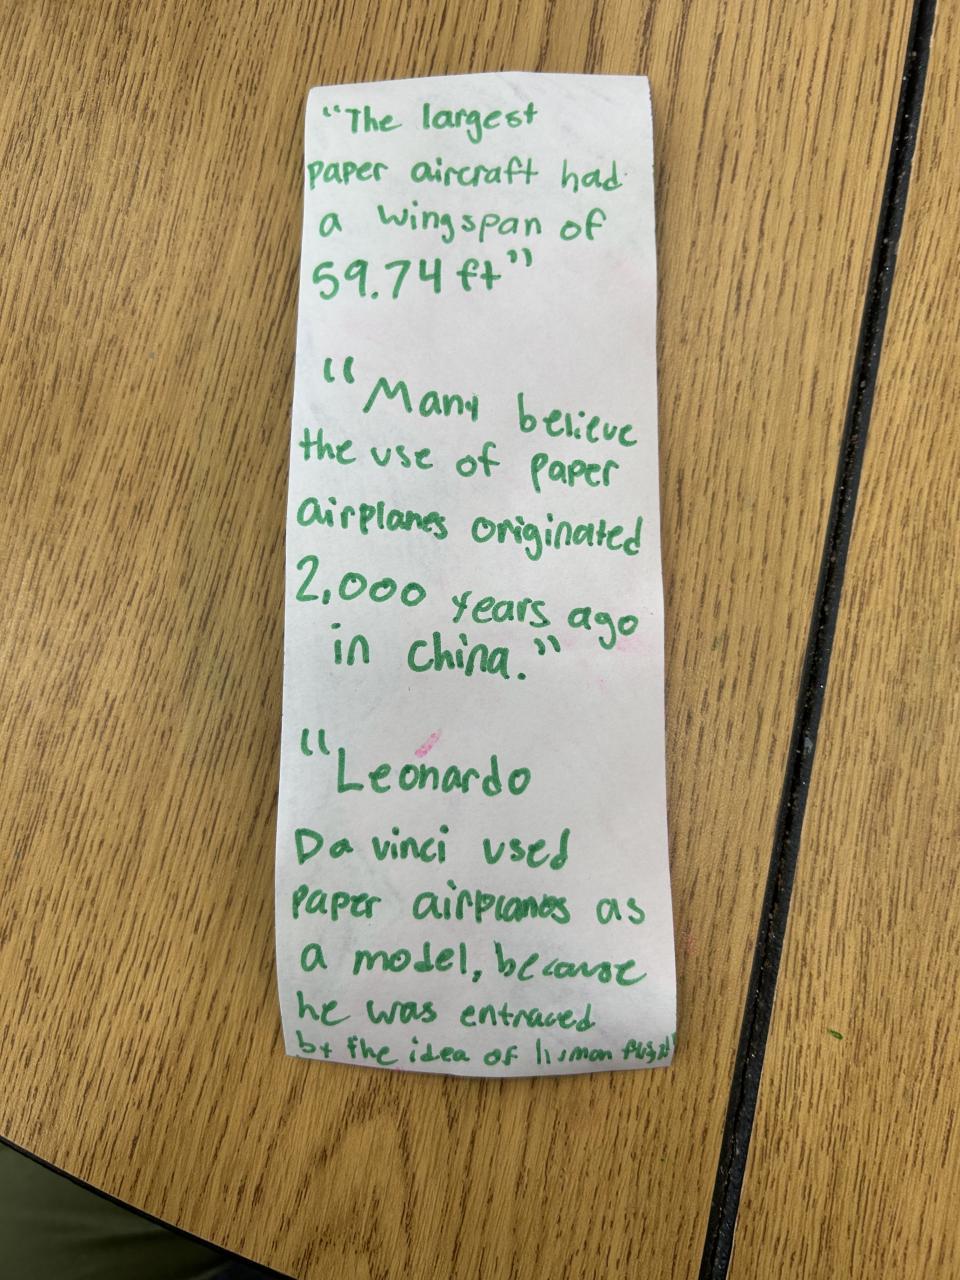 “The largest
paper aircraft had
a wingspan of
59.74 ft”
“Many believe
the use of paper
airplanes originated
2,000 years ago
in china.”
“Leonardo
Da vinci used
paper airplanes as
a model, because
he was entraced
by the idea of human flight”